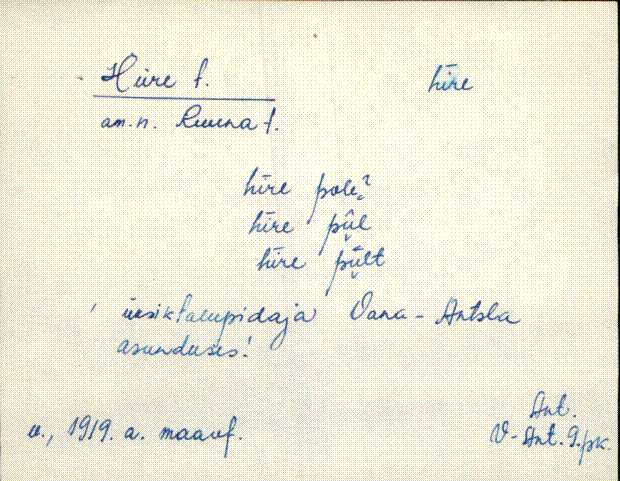 Hiire t. hīre
am. n. Ruuna t.
hīre pole?
hīre pǖl
hīre pǖlt
üksiktalupidaja Vana-Antsla
asunduses!
u., 1919. a. maauf.
Ant.
V-Ant. 9. pk.